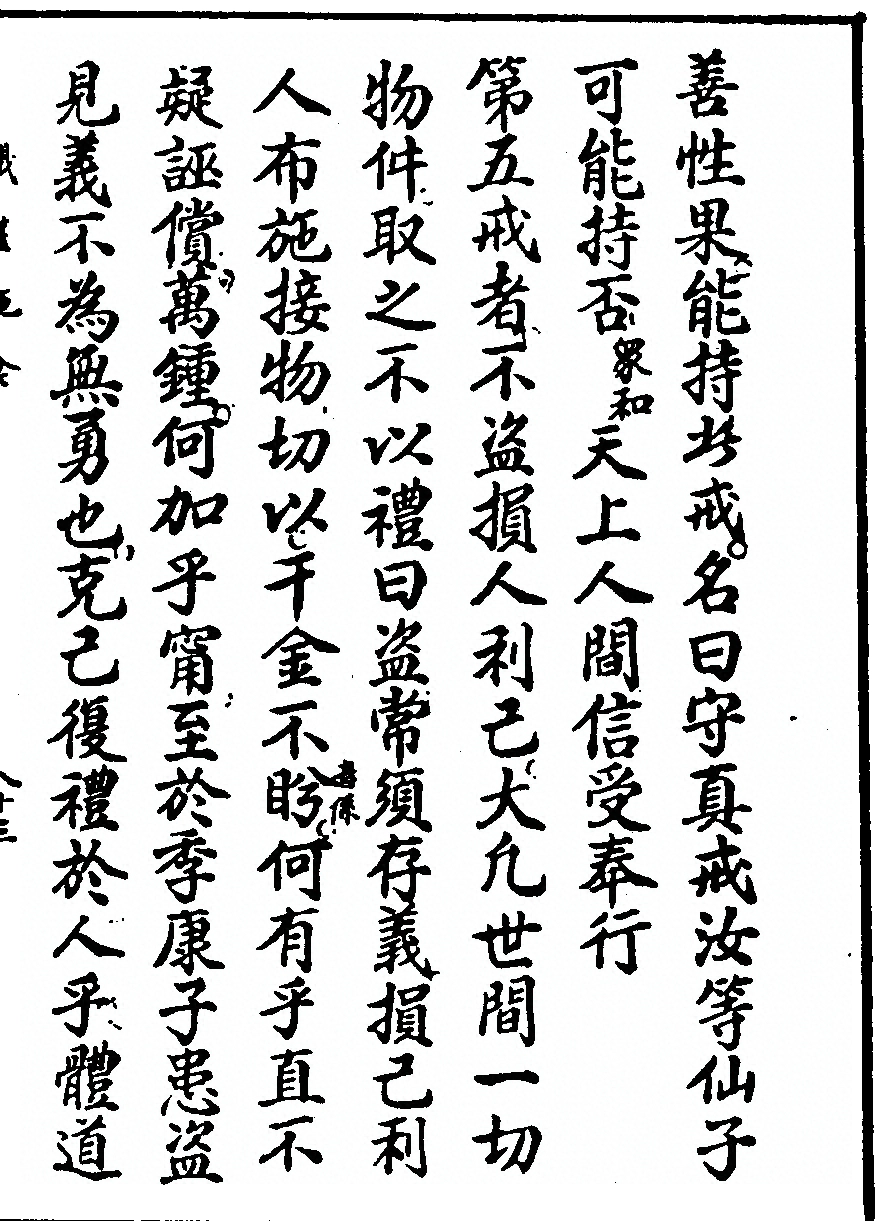 善性果能持此戒名曰守真戒汝等仙子
可能持否衆和天上人間信受奉行
第五戒者不盜損人利己大凡世間一切
物件取之不以禮曰盜常須存義損己利
人布施接物切以千金不盻何有乎直不
疑誣償萬鍾何加乎甯至於季康子患盜
見義不為無勇也克己復禮於人乎體道
八十三